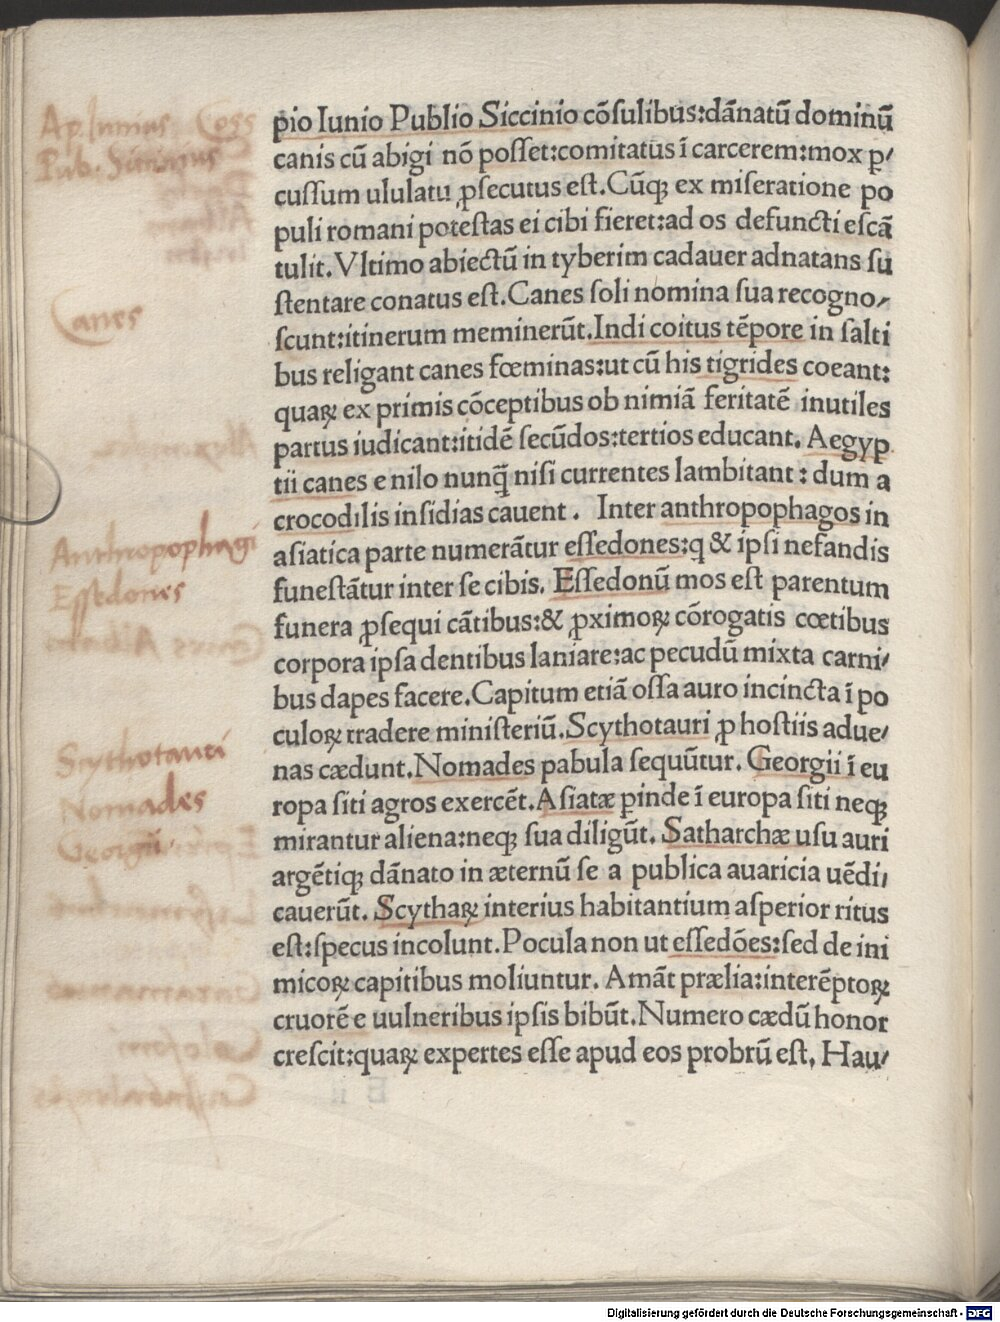 Ap. Iunius Coss
Pub. Sicinius
Canes
Anthropophagi
Essedones
Scythotauri
Nomades
Georgii
pio Iunio Publio Siccinio cõſulibus:dãnatũ dominũ
canis cũ abigi nõ poſſet:comitatus ĩ carcerem:mox ꝑ/
cuſſum ululatu ꝓſecutus eſt.Cũqꝫ ex miſeratione po
puli romani poteſtas ei cibi fieret:ad os defuncti eſcã
tulit.Vltimo abiectũ in tyberim cadauer adnatans ſu
ſtentare conatus eſt.Canes ſoli nomina ſua recogno/
ſcunt:itinerum meminerũt.Indi coitus tẽpore in ſalti
bus religant canes fœminas:ut cũ his tigrides coeant:
quaꝝ ex primis cõceptibus ob nimiã feritatẽ inutiles
partus iudicant:itidẽ ſecũdos:tertios educant. Aegyp
tii canes e nilo nunq̃ niſi currentes lambitant: dum a
crocodilis inſidias cauent. Inter anthropophagos in
aſiatica parte numerãtur eſſedones:q & ipſi nefandis
funeſtãtur inter ſe cibis. Eſſedonũ mos eſt parentum
funera ꝓſequi cãtibus:& ꝓximoꝝ cõrogatis cœtibus
corpora ipſa dentibus laniare:ac pecudũ mixta carni/
bus dapes facere.Capitum etiã oſſa auro incincta ĩ po
culoꝝ tradere miniſteriũ.Scythotauri ꝓ hoſtiis adue/
nas cædunt.Nomades pabula ſequũtur. Georgii ĩ eu
ropa ſiti agros exercẽt.Aſiatæ ꝑinde ĩ europa ſiti neqꝫ
mirantur aliena:neqꝫ ſua diligũt. Satharchæ uſu auri
argẽtiqꝫ dãnato in æternũ ſe a publica auaricia uẽdi/
cauerũt. Scythaꝝ interius habitantium aſperior ritus
eſt:ſpecus incolunt.Pocula non ut eſſedões:ſed de ini
micoꝝ capitibus moliuntur. Amãt prælia:interẽptoꝝ
cruorẽ e uulneribus ipſis bibũt.Numero cædũ honor
creſcit:quaꝝ expertes eſſe apud eos probrũ eſt. Hau/
Digitalisierung gefördert durch die Deutsche Forschungsgemeinschaft - DFG